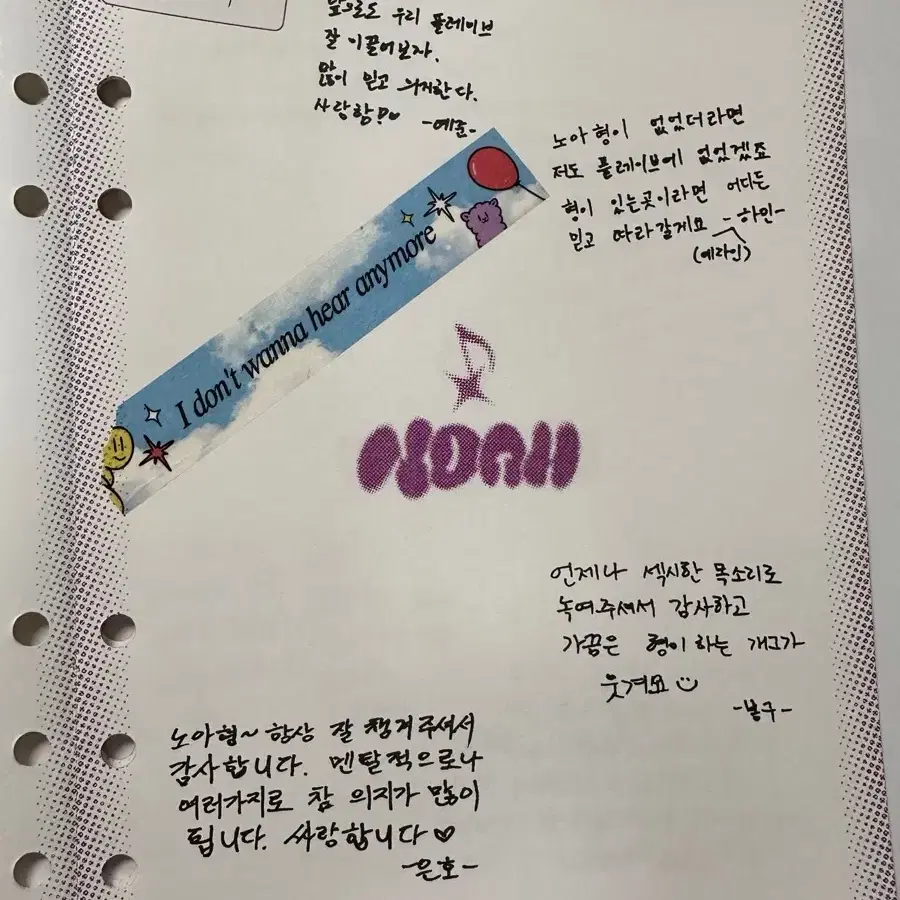 앞으로도 우리 플레이브
잘 이끌어보자.
많이 믿고 의지한다.
사랑함!♡ -예준-
노아형이 없었더라면
저도 플레이브에 없었겠죠
형이 있는곳이라면 어디든
믿고 따라갈게요 -하민-
(메라인)
I don't wanna hear anymore
NOAH
언제나 섹시한 목소리로
녹여주셔서 감사하고
가끔은 형이 하는 개그가
웃겨요
-봉구-
노아형~ 항상 잘 챙겨주셔서
감사합니다. 멘탈적으로나
여러가지로 참 의지가 많이
됩니다. 싸랑합니다♡
-은호-